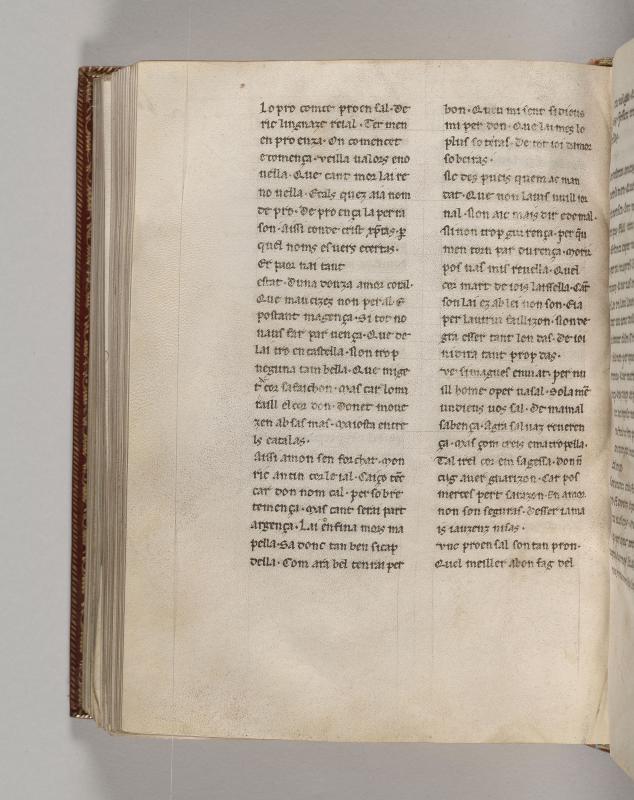 Lo pro comte proensal · De
ric lingnaze reial · Ter men
en proenza · On comencet
e comença · veilla ualors eno
uella · Que cant mor lai re
no uella · Etals quez aia nom
de pro · De proença la perra
son · Aissi conde crist
quel noms es uers e certas ·
Er paor nai tant
estat · Duna donza amor coral ·
Que mau cizez non per al
postant magença · Si tot no
naus far par uença · Que de
lai tro en castella · Non trop
neguna tan bella · Que mige
cor sa faichon · mas car lomi
taill el cor don · Donet moue
zen ab sas mas · maiosta entre
ls catalas ·
Aissi amon sen forchat · mon
ric an tin cor leial · Caiço
car don nom cal · per sobre
temença · mas cant serai part
argença · Lai enfina mors ma
pella · Sa donc tan ben sicap
della · Com ara bel tenrai per
bon · Queu mi sent si dieus
mi per don · Que lai mes lo
plus soteiras · De tot ioi damor
sobeiras ·
Ric des pueis quem ac man
dat · Que non laus nuill ior
nal · Non aic mais dir edemal ·
Si non trop gua rença · per
men torn par durença · morir
pos uas mis reuella · Quel
cor mart de iois laissella · Car
son lai ez ab lei non son · Eia
per lautrui faillizon · Non de
gra esser tant lon das · De ioi
ni dira tant prop das ·
ve si magues enuiat · per nu
ill home oper uasal · Sola
un dieus uos sal · De mainal
sabença · Agra saluaz reueren
ça · mas çom creis ema tropella ·
Tal irel cor em sagella ·
cug auer guarizon · Car pos
merces pert saiazon · En amor
non son seguras · Desser iama
is iauzenz nisas ·
vnc proensal son tan pron ·
Quel meiller abon fag del